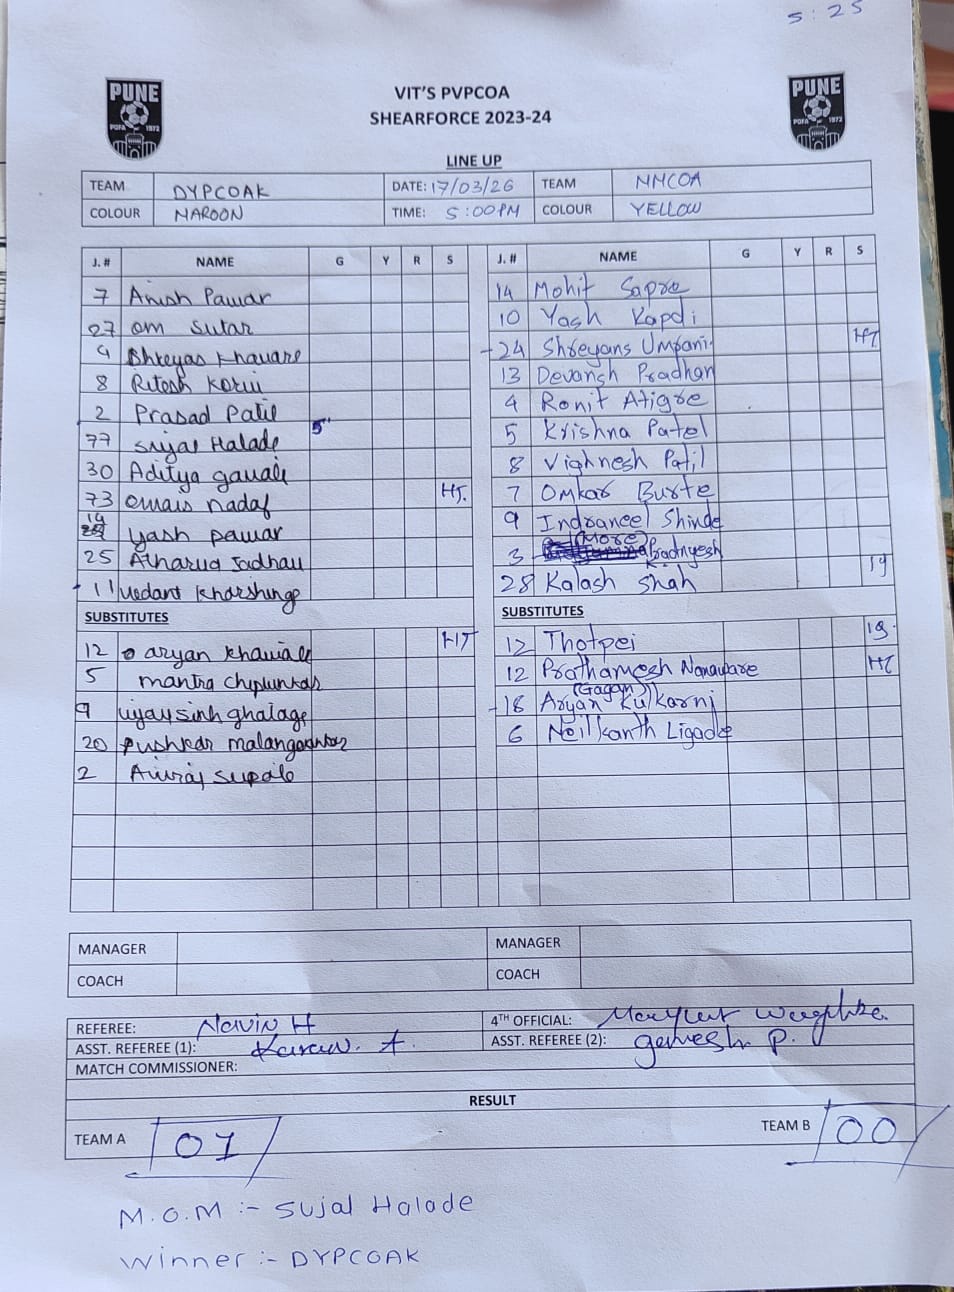 5:25
PUNE
PDFA 1972
PUNE
PDFA 1972
VIT'S PVPCOA
SHEARFORCE 2023-24
LINE UP
TEAM DYPCOAK DATE: 17/03/26 TEAM NMCOA
COLOUR MAROON TIME: 5:00PM COLOUR YELLOW
J.# NAME G Y R S J.# NAME G Y R S
7 Anish Pawar 14 Mohit Sapre
27 om Sutar 10 Yash Kapdi
9 Shreyas Khavare -24 Shreyans Umrani HT
8 Ritesh 13 Devansh Pradhan
2 Prasad Patil 4 Ronit Atigre
77 Sujal Halade 5" 5 Krishna Patel
30 Aditya gavali 8 Vighnesh Patil
73 owais nadaf HT. 7 Omkar Burte
19 yash pawar 9 Indraneel Shinde
25 Atharva Jadhav 3 (More) Pradnyesh
11 vedant Kharshinge 28 Kalash Shah 19
SUBSTITUTES SUBSTITUTES
12 aryan khawale HT 12 Thotpei 19
5 mantra chiplunkar 12 Prathamesh Nanaware HT
9 vijaysinh ghalage -18 Aryan (Gagan) Kulkarni
20 pushkar 6 Neilkanth Ligade
2 Aviraj supale
MANAGER MANAGER
COACH COACH
REFEREE: Navin H 4TH OFFICIAL:
ASST. REFEREE (1): Karan. A. ASST. REFEREE (2): ganesh P.
MATCH COMMISSIONER:
RESULT
TEAM A 01 TEAM B 00
M.O.M :- Sujal Halade
Winner :- DYPCOAK